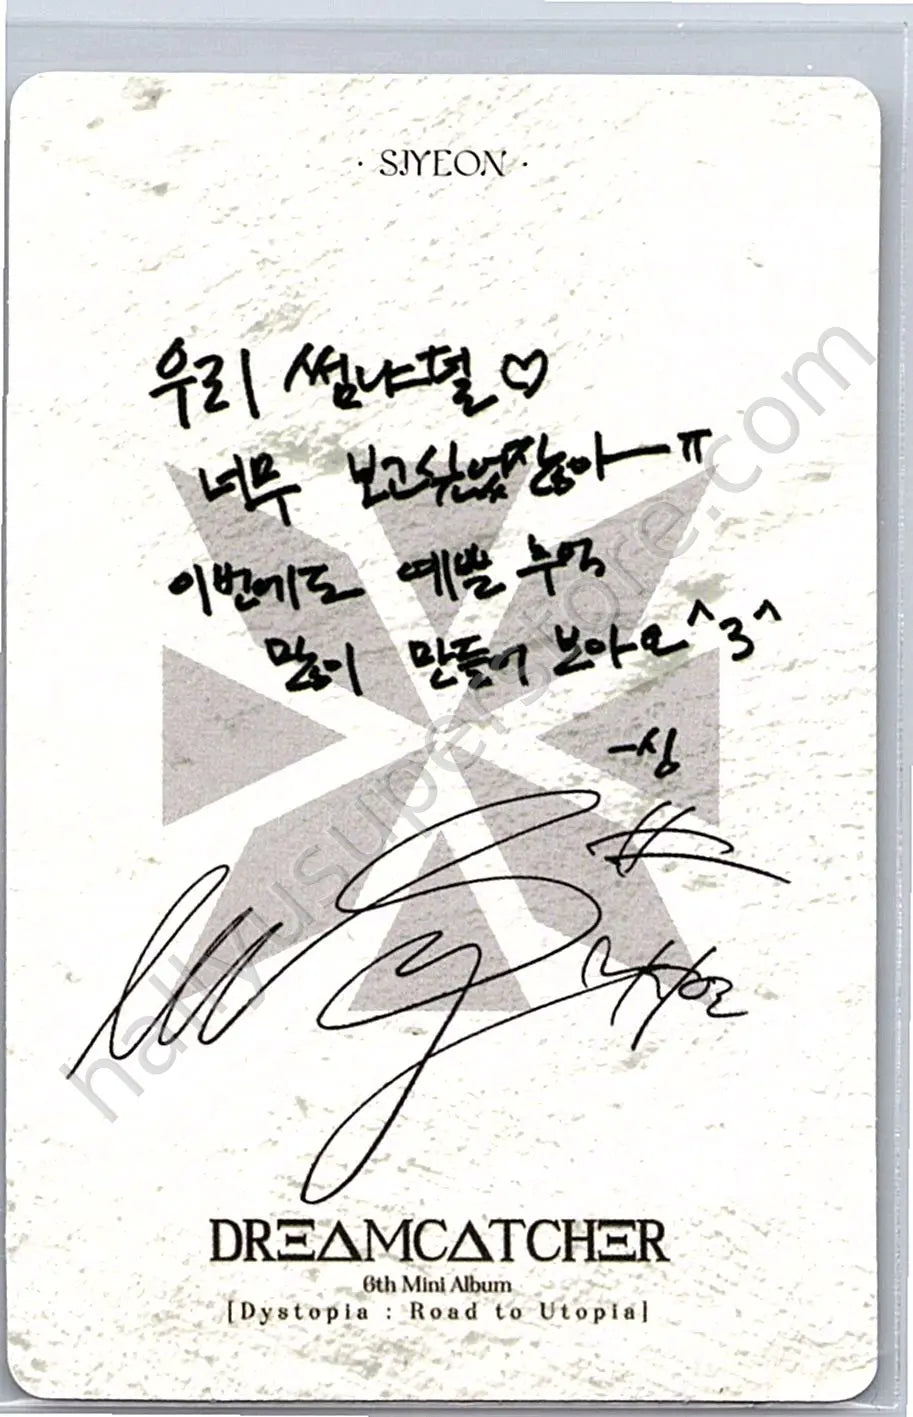 · SIYEON ·
우리 썸냐덜 ♡
너무 보고싶었잖아ㅡㅠ
이번에도 예쁜 추억
많이 만들어 보아요^3^
-싱
DREAMCATCHER
6th Mini Album
[Dystopia : Road to Utopia]
hallyusuperstore.com